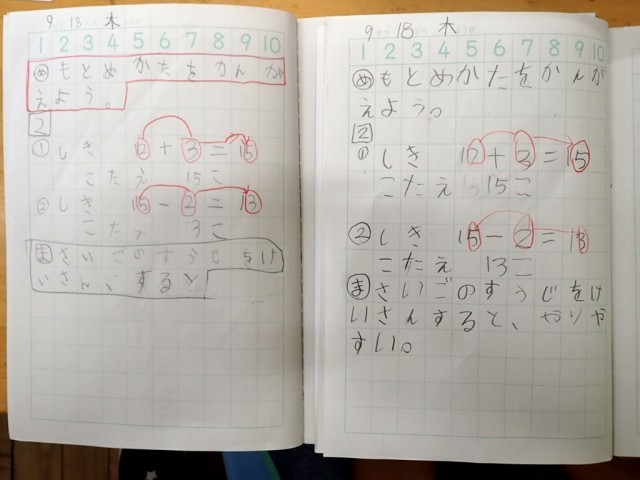 9 18 木
1 2 3 4 5 6 7 8 9 10
めもとめかたをかんが
えよう。
2
① しき 12+3=15
こたえ 15こ
② しき 15-2=13
こた 3こ
まさいごのすうじをけ
いさんすると
9 18 木
1 2 3 4 5 6 7 8 9 10
めもとめかたをかんが
えよう。
2
① しき 12+3=15
こたえ 15こ
② しき 15-2=13
こたえ 13こ
まさいごのすうじをけ
いさんすると、やりや
すい。